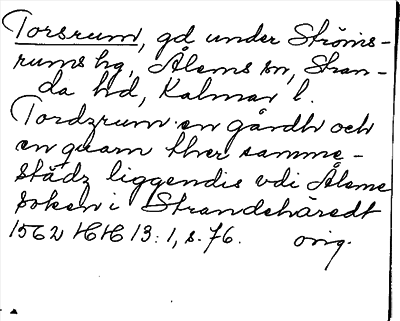 Torsrum, gd under Ströms-
rums hg, Ålems sn, Stran-
da hd, Kalmar l.
Tordzrum en gårdh och
en quarn ther samme-
städz liggendis vdi Ålems
soken i Strandehäredt
1562 HH 13:1, s. 76. orig.